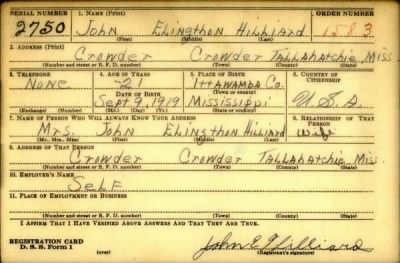 SERIAL NUMBER 1. NAME (Print) ORDER NUMBER
2750 John Elingthon Hilliard 1583
(First) (Middle) (Last)
2. ADDRESS (Print)
Crowder Crowder Tallahatchie Miss.
(Number and street or R. F. D. number) (Town) (County) (State)
3. TELEPHONE 4. AGE IN YEARS 5. PLACE OF BIRTH 6. COUNTRY OF CITIZENSHIP
None 21 Ittawamba Co.
DATE OF BIRTH (Town or county)
Sept 9, 1919 Mississippi U.S.A.
(Exchange) (Number) (Mo.) (Day) (Yr.) (State or country)
7. NAME OF PERSON WHO WILL ALWAYS KNOW YOUR ADDRESS 8. RELATIONSHIP OF THAT PERSON
Mrs John Elingthon Hilliard wife
(Mr., Mrs., Miss) (First) (Middle) (Last)
9. ADDRESS OF THAT PERSON
Crowder Crowder Tallahatchie Miss.
(Number and street or R. F. D. number) (Town) (County) (State)
10. EMPLOYER'S NAME
Self
11. PLACE OF EMPLOYMENT OR BUSINESS
(Number and street or R. F. D. number) (Town) (County) (State)
I AFFIRM THAT I HAVE VERIFIED ABOVE ANSWERS AND THAT THEY ARE TRUE.
REGISTRATION CARD
D. S. S. Form 1 John E Hilliard
(Registrant's signature)